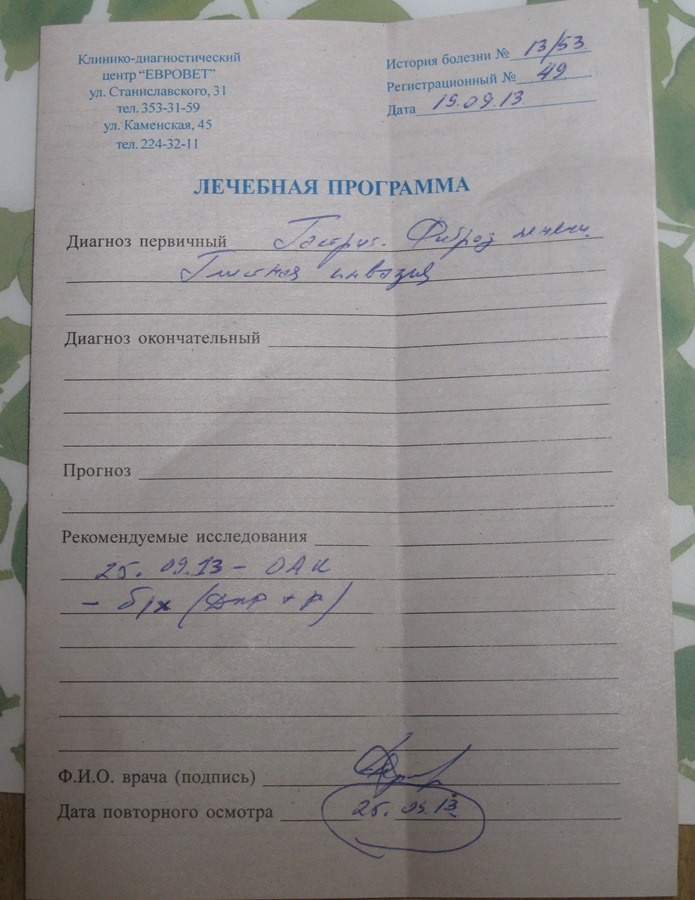 Клинико-диагностический
центр "ЕВРОВЕТ"
ул. Станиславского, 31
тел. 353-31-59
ул. Каменская, 45
тел. 224-32-11
История болезни № 13/53
Регистрационный № 49
Дата 19.09.13
ЛЕЧЕБНАЯ ПРОГРАММА
Диагноз первичный Гастрит. Фиброз печени.
Глистная инвазия
Диагноз окончательный
Прогноз
Рекомендуемые исследования
25.09.13 - ОАК
- б/х
Ф.И.О. врача (подпись)
Дата повторного осмотра 25.09.13